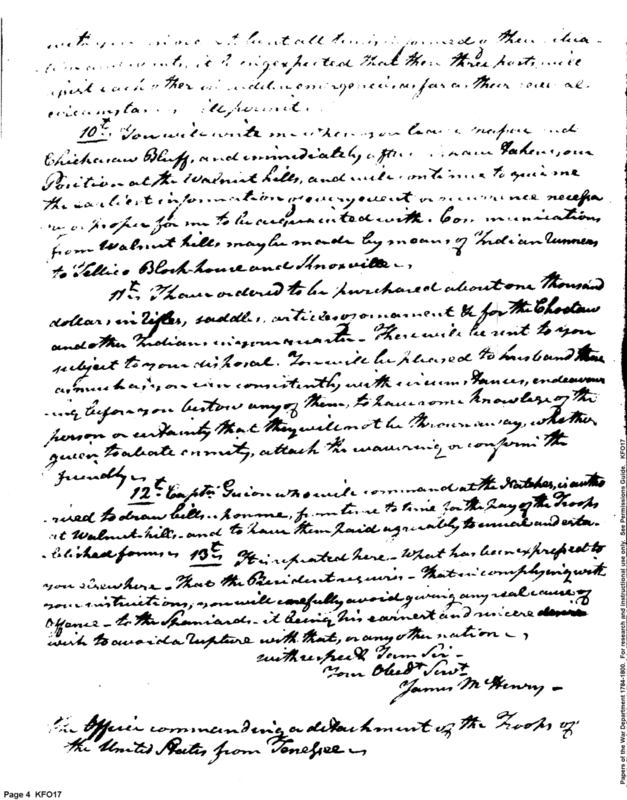 with you since it, but all being informed of their situa-
it is expected that these three posts will
assist each other in sudden emergencies as far as their several
circumstances will permit.
10th. You will write me when you leave Massac and
Chickasaw Bluff, and immediately after have taken your
Position at the Walnut hills, and will continue to give me
the earliest information of every event or occurrence necessa
ry or proper for me to be acquainted with. Communications
from Walnut hills may be made by means of Indian runners
to Tellico Block-house and Knoxville.
11th. I have ordered to be purchased about one thousand
dollars in Rifles, saddles, articles of ornament &c for the Choctaw
and other Indians in your quarter. These will be sent to you
subject to your disposal. You will be pleased to husband these
as much as you can consistently with circumstances, endeavour
ing before you bestow any of them, to have some knowledge of the
person or certainty that they will not be thrown away, whether
given to abate enmity, attach the wavering or confirm the
friendly.
12th. Captn Guion who will command at the Natches, is autho
rised to draw bills upon me, from time to time for the pay of the Troops
at Walnut-hills, and to have them paid agreeably to usual and esta-
blished forms. 13th. It is repeated here - What has been expressed to
you elsewhere - That the President requires - That in complying with
your instructions, you will carefully avoid giving any real cause of
Offence - to the Spaniards - it being his earnest and sincere desire
wish to avoid a rupture with that, or any other nation.
with respect I am Sir -
Your Obedt Servt
James McHenry -
The Officer commanding a detachment of the Troops of
the United States from Tenessee
Page 4 KFO17
Papers of the War Department 1784-1800. For research and instructional use only. See Permissions Guide. KFO17